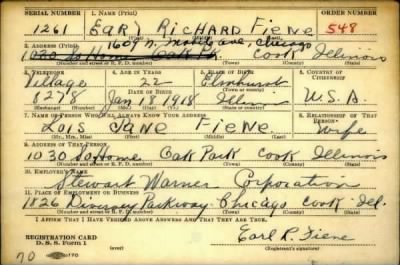 SERIAL NUMBER 1. NAME (Print) ORDER NUMBER
1261 EARL RICHARD FIENE 548
(First) (Middle) (Last)
1609 N. Chicago
2. ADDRESS (Print)
1030 So Home Oak Pk. Cook Illinois
(Number and street or R. F. D. number) (Town) (County) (State)
3. TELEPHONE 4. AGE IN YEARS 5. PLACE OF BIRTH 6. COUNTRY OF CITIZENSHIP
Village 22 Elmhurst
DATE OF BIRTH (Town or county)
Jan 18 1918 Illinois U.S.A.
(Exchange) (Number) (Mo.) (Day) (Yr.) (State or country)
7. NAME OF PERSON WHO WILL ALWAYS KNOW YOUR ADDRESS 8. RELATIONSHIP OF THAT PERSON
Lois Jane Fiene Wife
(Mr., Mrs., Miss) (First) (Middle) (Last)
9. ADDRESS OF THAT PERSON
1030 So Home Oak Park Cook Illinois
(Number and street or R. F. D. number) (Town) (County) (State)
10. EMPLOYER'S NAME
Stewart Warner Corporation
11. PLACE OF EMPLOYMENT OR BUSINESS
1826 Diversey Parkway Chicago Cook Ill.
(Number and street or R. F. D. number) (Town) (County) (State)
I AFFIRM THAT I HAVE VERIFIED ABOVE ANSWERS AND THAT THEY ARE TRUE.
REGISTRATION CARD
D. S. S. Form 1
Earl R. Fiene
(Registrant's signature)
70